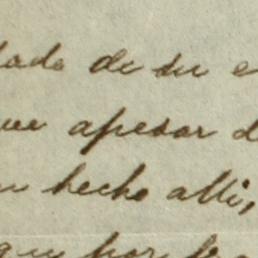 lado de su e
ue apesar d
n hecho alli,
por